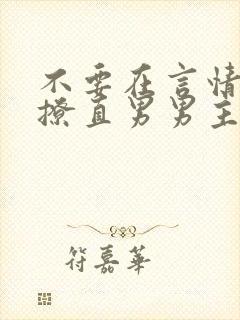 不要在言情
撩直男男主
符嘉華